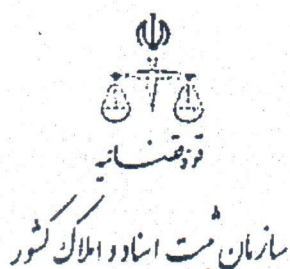 قوه قضائیه
سازمان ثبت اسناد و املاک کشور